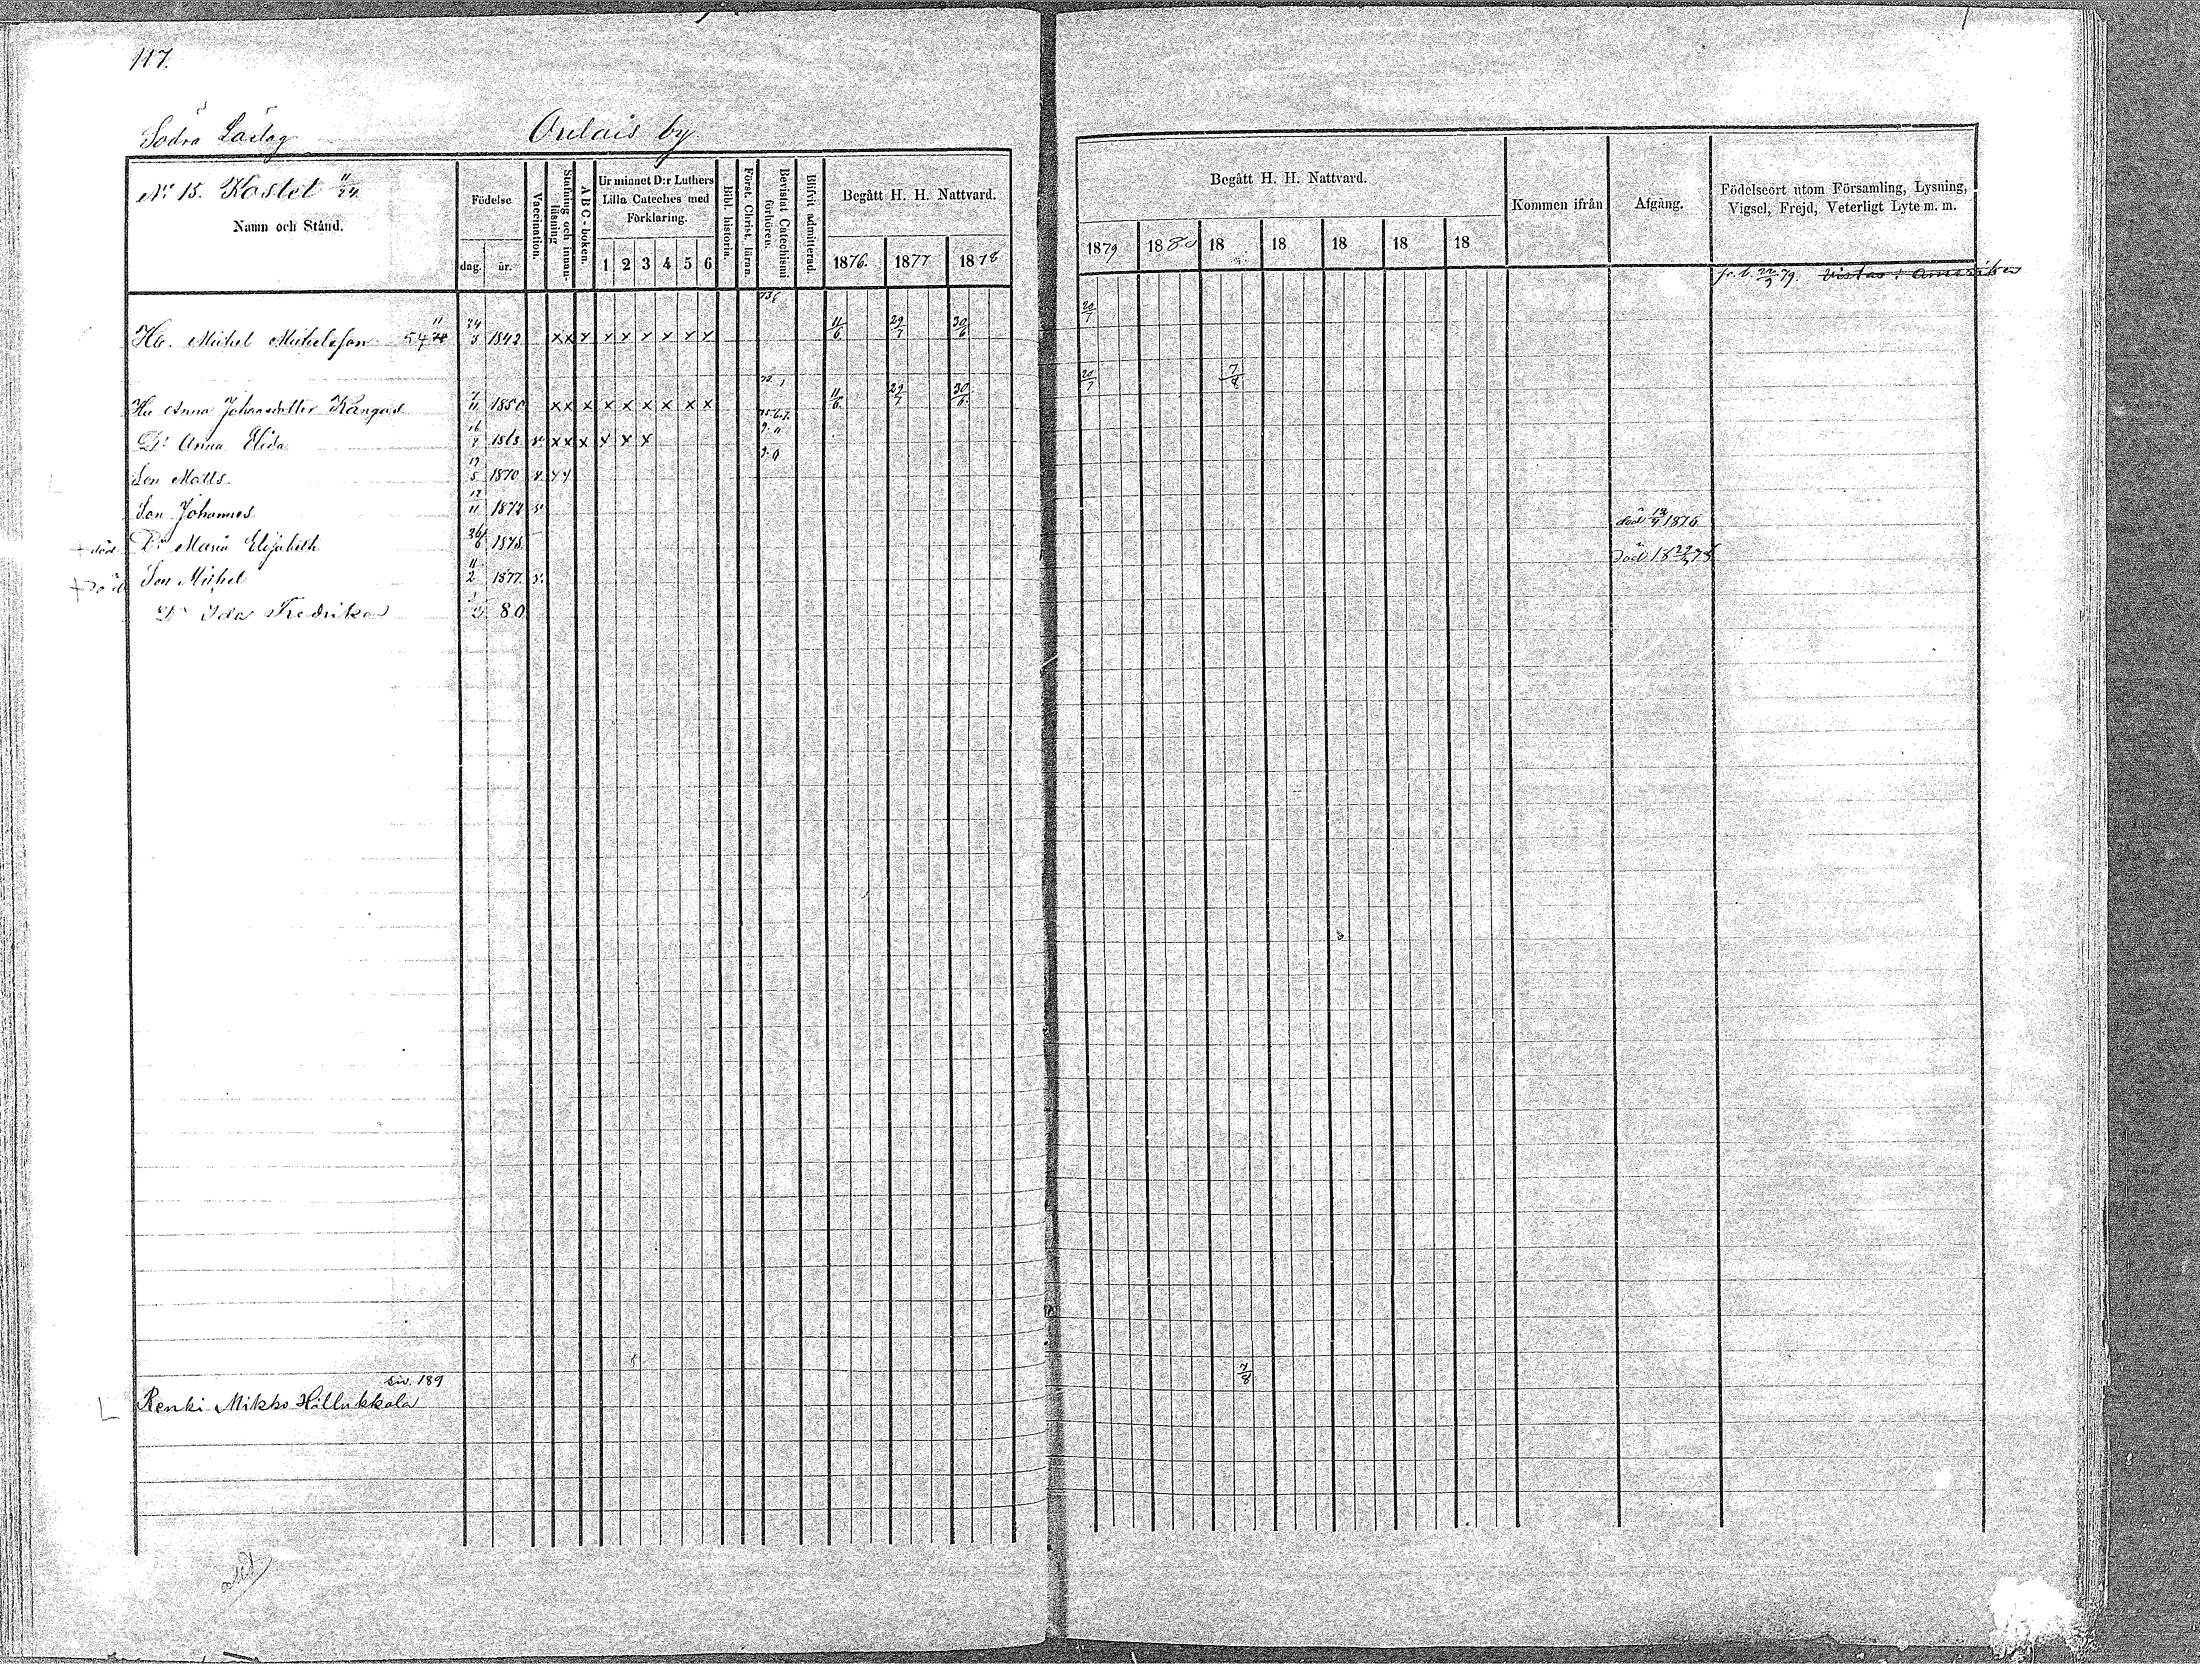 117.
Södra Låelag Oulais by
No 15. Kastet 11/24
Namn och Stånd.
Födelse
dag. år.
Vaccination.
Stafning och innanläsning
A B C-boken.
Ur minnet D:r Luthers Lilla Cateches med Förklaring.
1 2 3 4 5 6
Bibl. historia.
Först. Christ. läran.
Bevistat Catechismi förhören.
Blifvit admitterad.
Begått H. H. Nattvard.
1876. 1877 1878
Begått H. H. Nattvard.
1879 1880 18 18 18 18 18
Kommen ifrån
Afgång.
Födelseort utom Församling, Lysning, Vigsel, Frejd, Veterligt Lyte m. m.
fr. b. 22/3 79. vistas i Amerika
Hb. Michel Michelsson 24/5 1842 x x x x x x x x x 11/6 29/7 30/6 20/7
Hu Anna Johansdotter Kangas 7/11 1850 x x x x x x x x x 11/6 29/7 30/6 20/7 7/8
Dr Anna Elida 16/4 1868 v x x x x x x
Son Matts 19/5 1870 v x x
Son Johannes 12/11 1872 v
+ död Dr Maria Elisabeth 26/6 1875 död 12/4 1876
+ död Son Michel 11/2 1877 v. död 18 29/5 78
Dr Ida Fredrika 80
siv. 189
Renki Mikko Hillukkala 7/8